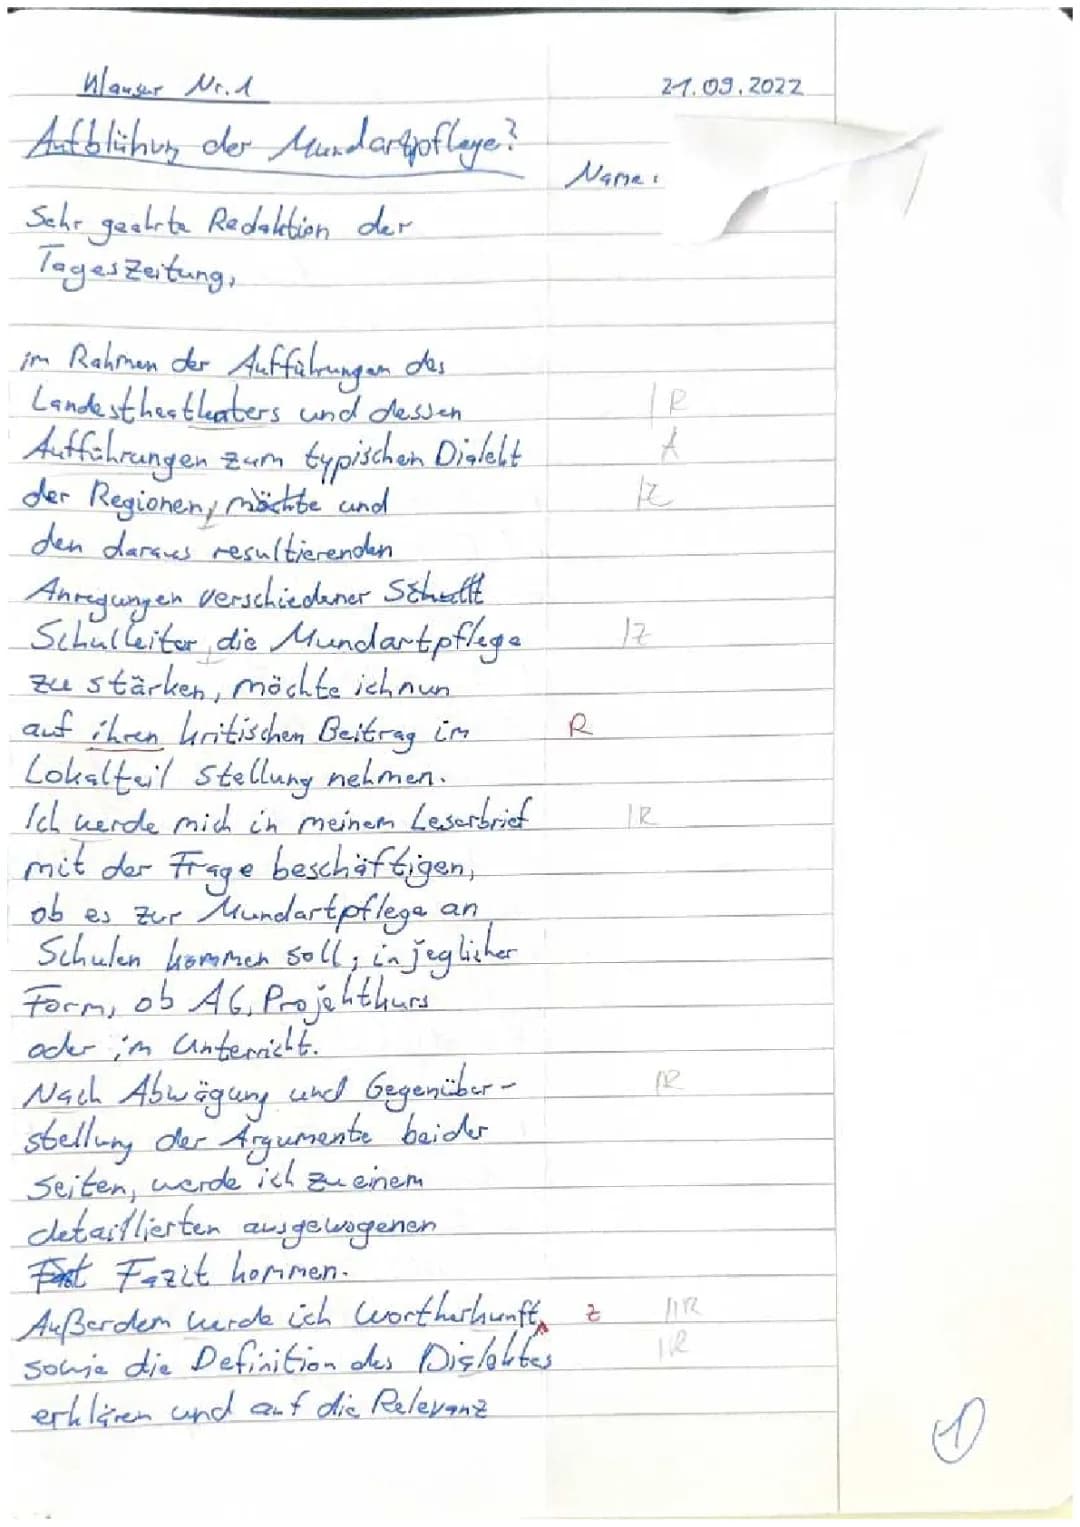 Klausur Nr. 1
21.09.2022
Aufblühung der Mundartpflege?
Name:
Sehr geehrte Redaktion der
Tageszeitung,
im Rahmen der Aufführungen des
Landestheatheaters und dessen
R
Aufführungen zum typischen Dialekt
A
der Regionen, möchte und
Z
den daraus resultierenden
Anregungen verschiedener
Schulleiter, die Mundartpflege
Z
zu stärken, möchte ich nun
auf ihren kritischen Beitrag im
R
Lokalteil stellung nehmen.
Ich werde mich in meinem Leserbrief
R
mit der Frage beschäftigen,
ob es zur Mundartpflege an
Schulen kommen soll, in jeglicher
Form, ob AG, Projektkurs
oder im Unterricht.
Nach Abwägung und Gegenüber-
R
stellung der Argumente beider
Seiten, werde ich zu einem
detaillierten ausgewogenen
Fazit kommen.
Außerdem werde ich Wortherkunft,
z
R
sowie die Definition des Dialektes
R
erklären und auf die Relevanz
1